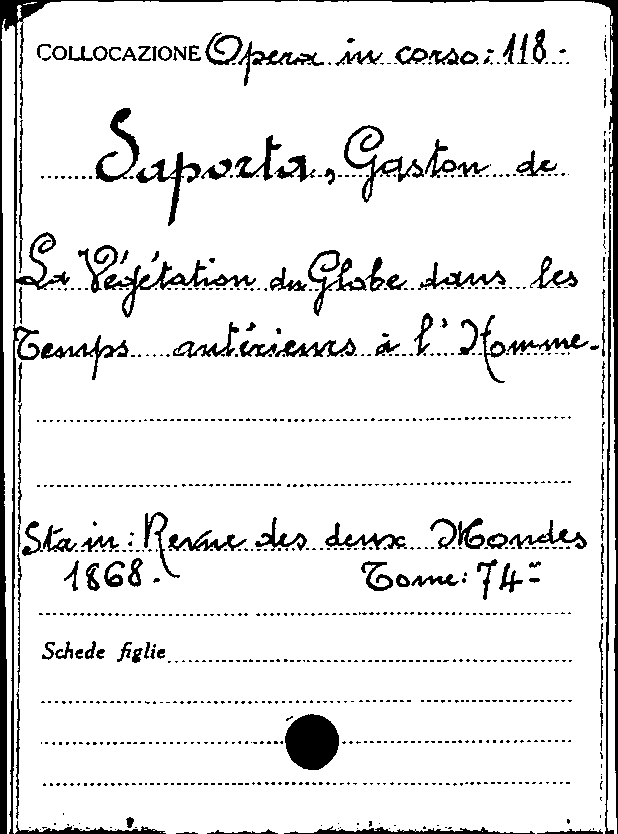 COLLOCAZIONE Opera in corso: 118.
Saporta, Gaston de
La Végétation du Globe dans les
Temps antérieurs à l'Homme.
Sta in: Revue des deux Mondes
1868. Tome: 74°
Schede figlie